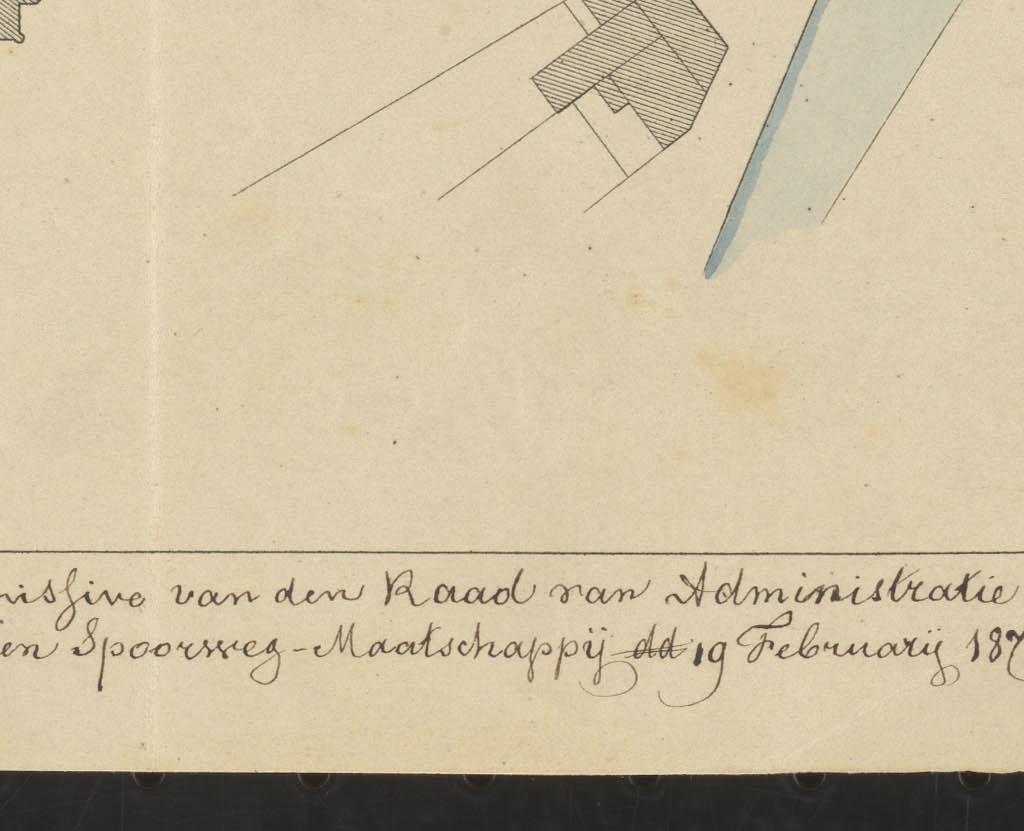 missive van den Raad van Administratie
en Spoorweg-Maatschappij dd 19 February 187